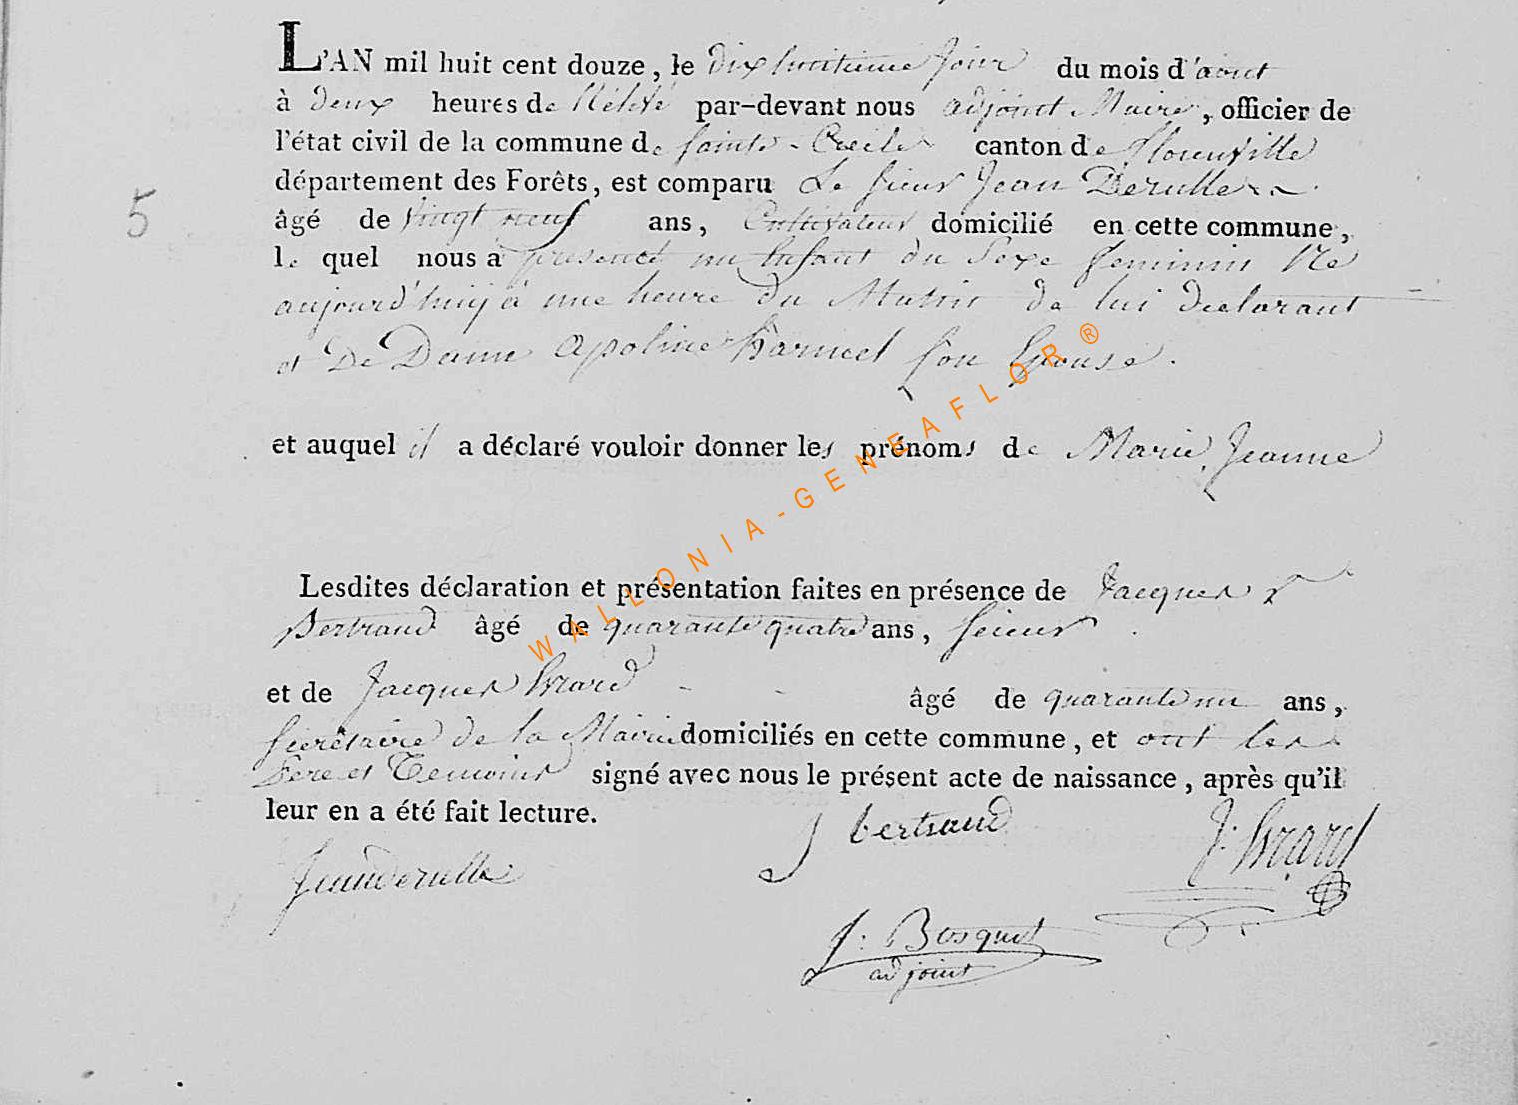 L'AN mil huit cent douze, le dix huitieme Jour du mois d'aout
à deux heures de Rélévé par-devant nous adjoint Maire, officier de
l'état civil de la commune de Sainte-Cecile canton de florenville
département des Forêts, est comparu Le Sieur Jean Derulle
âgé de vingt neuf ans, Cultivateur domicilié en cette commune,
le quel nous a presenté un Enfant du Sexe feminin Né
aujourd'huij à une heure du Matin de lui declarant
et De Dame apoline Son Epouse.
et auquel il a déclaré vouloir donner les prénoms de Marie Jeanne
5
Lesdites déclaration et présentation faites en présence de Jacques
Bertrand âgé de quarante quatre ans,
et de Jacques Evrard âgé de quarante un ans,
Secretaire de la Mairie domiciliés en cette commune, et ont les
Pere et Temoins signé avec nous le présent acte de naissance, après qu'il
leur en a été fait lecture.
J bertrand
J. Evrard
Jean derulle
J: Bosquet
adjoint
WALLONIA-GENEAFLOR ®